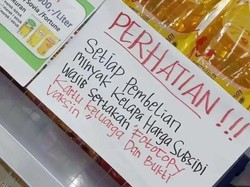 /Liter
Savia /Fortune
PERHATIAN !!!
Setiap Pembelian
minyak Kelapa Harga Subsidi
Wajib Sertakan Fotocopy
Kartu Keluarga Dan Bukti
Vaksin